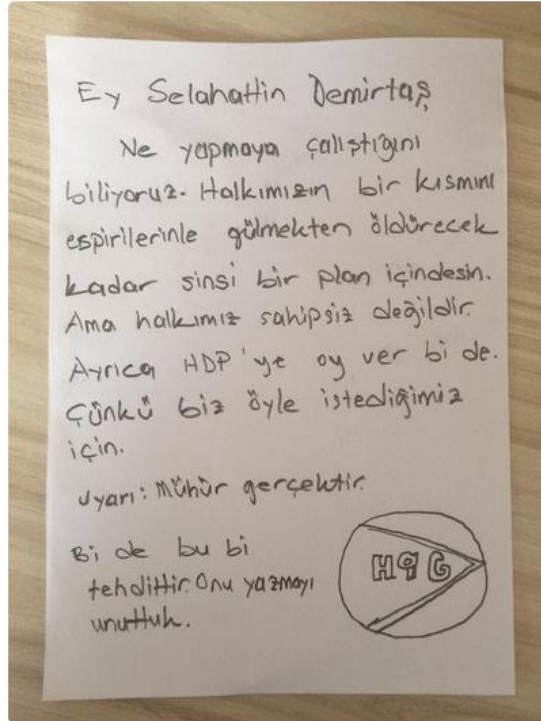 Ey Selahattin Demirtaş
Ne yapmaya çalıştığını
biliyoruz. Halkımızın bir kısmını
espirilerinle gülmekten öldürecek
kadar sinsi bir plan içindesin.
Ama halkımız sahipsiz değildir.
Ayrıca HDP'ye oy ver bi de.
Çünkü biz öyle istediğimiz
için.
Uyarı: Mühür gerçektir.
Bi de bu bi
tehdittir. Onu yazmayı
unuttuk.
HqG